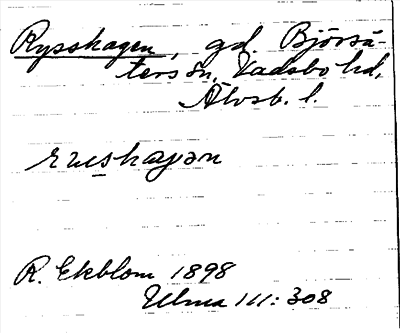 Rysshagen, gd. Björsä-
ters sn, Vadsbo hd,
Älvsb. l.
R. Ekblom 1898
Ulma 111: 308